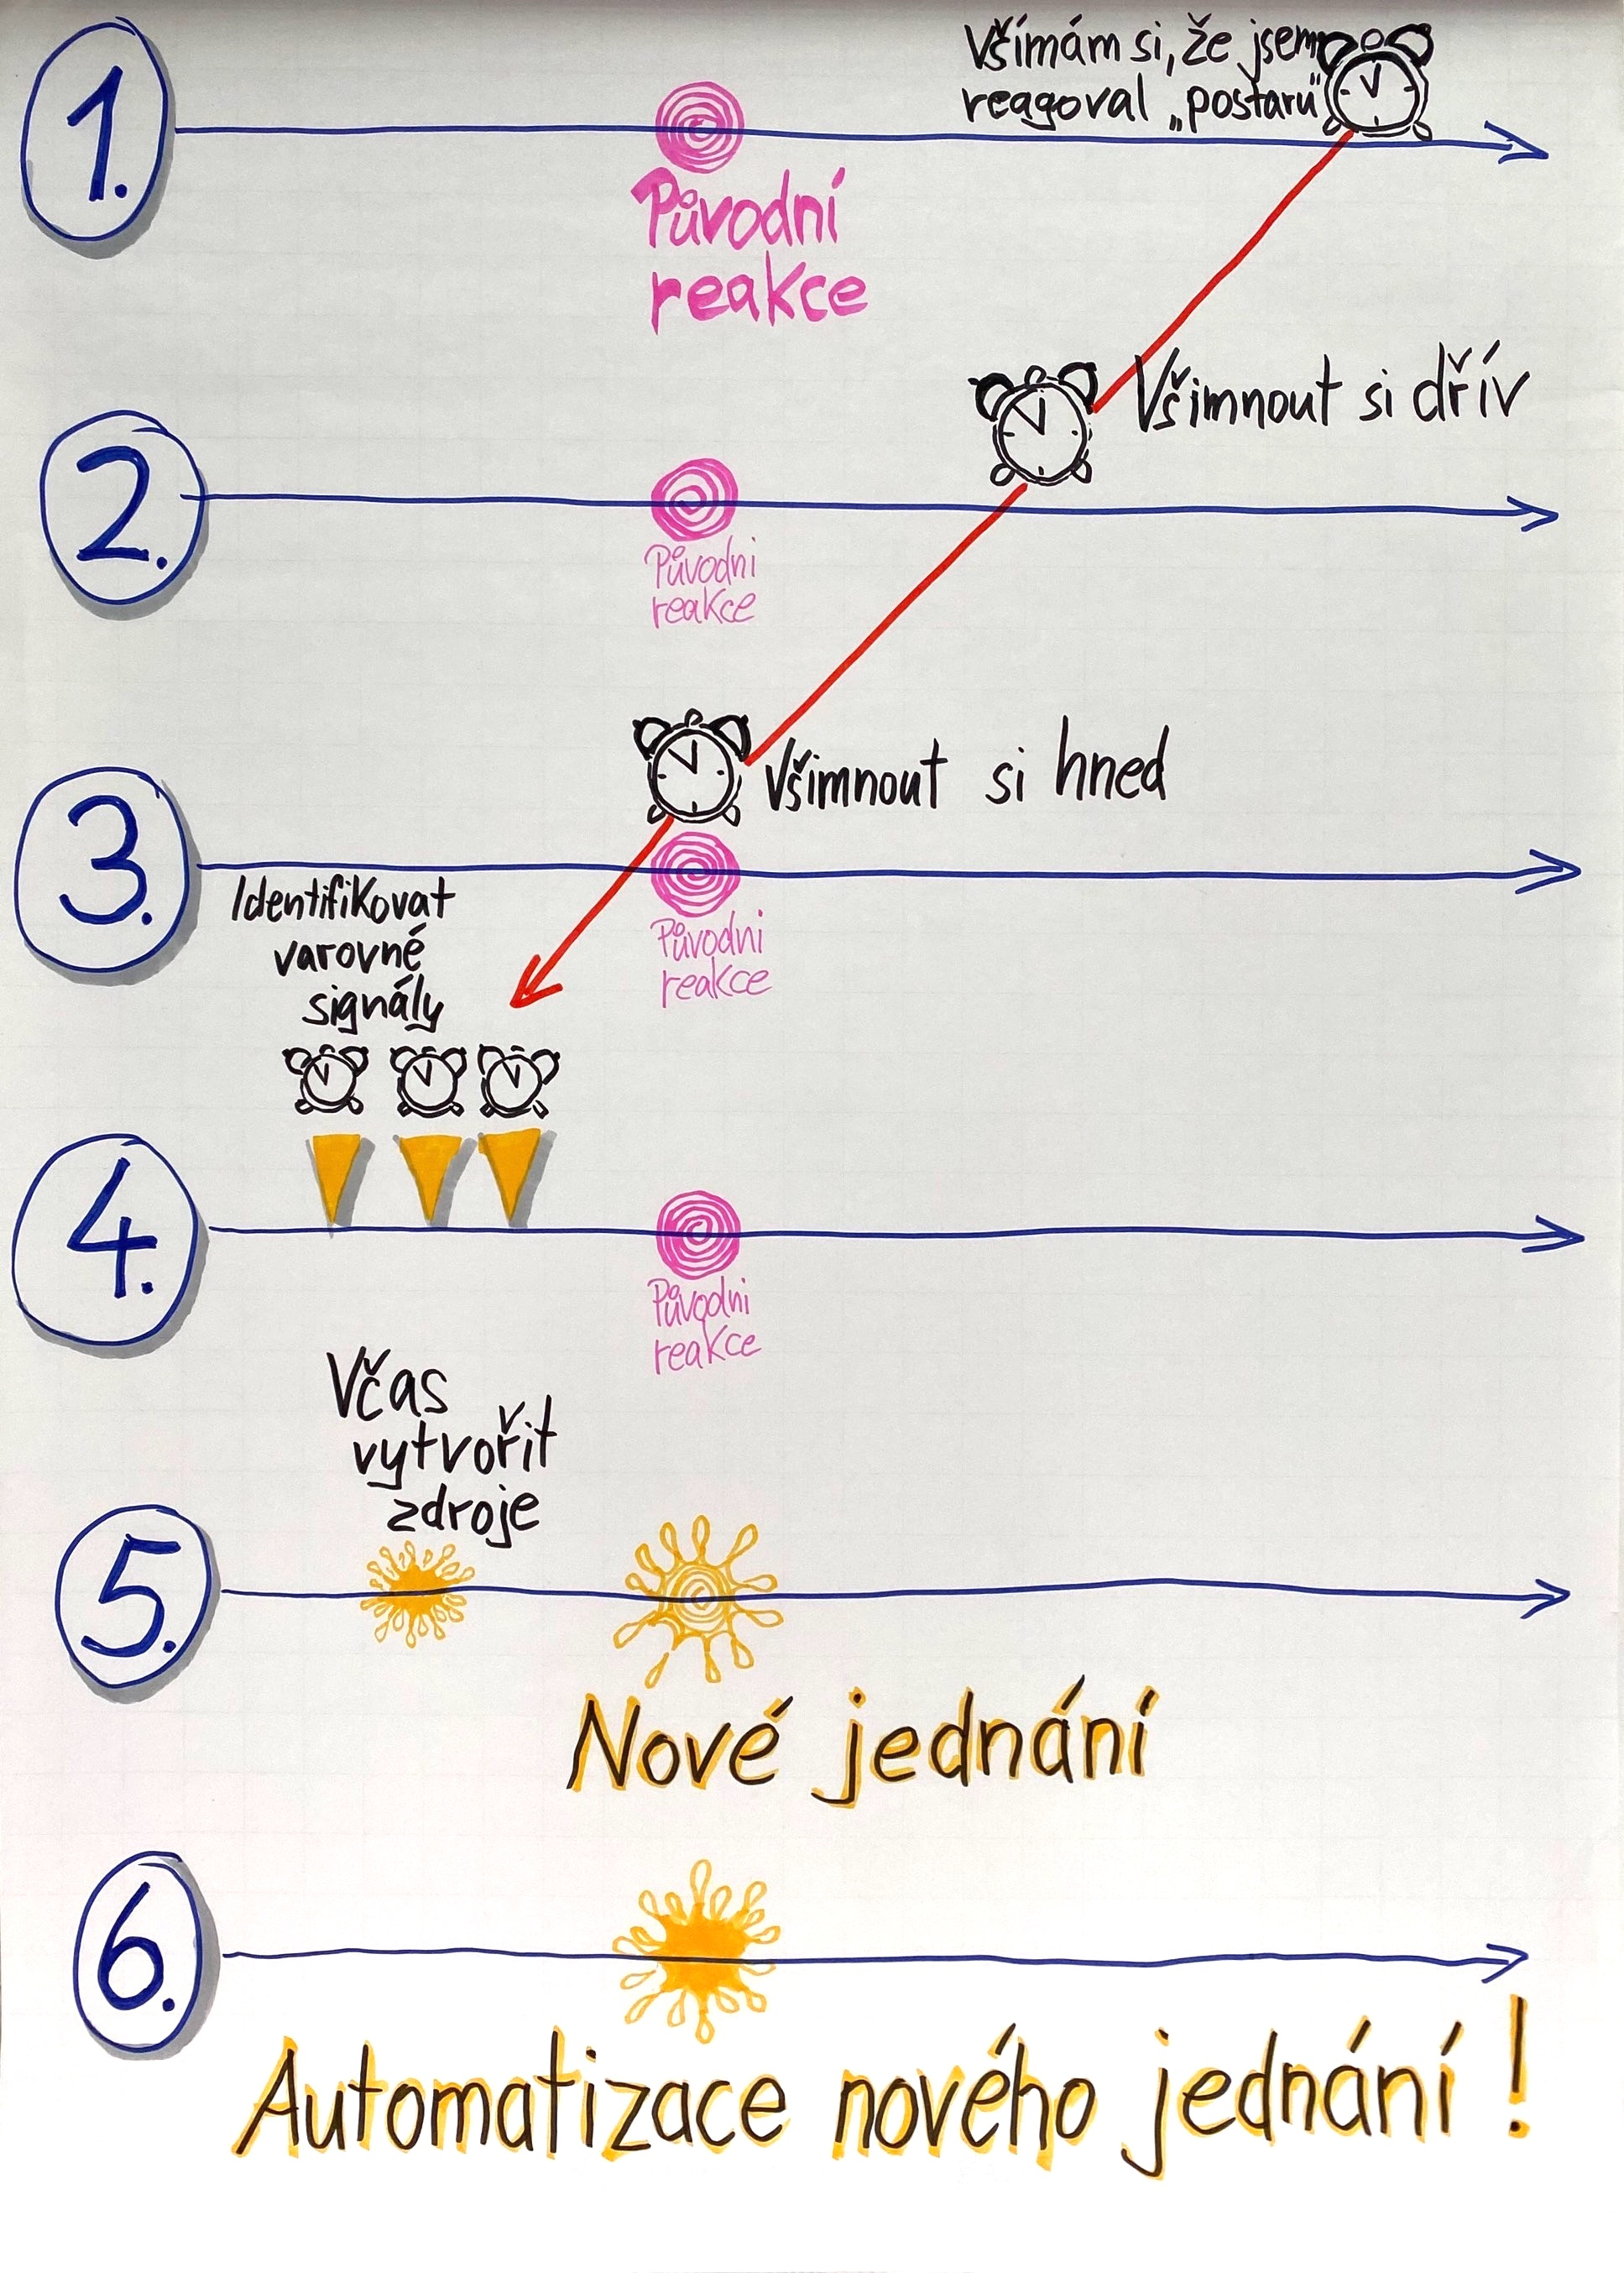 1.
Všímám si, že jsem
reagoval „postaru"
Původní
reakce
Všimnout si dřív
2.
Původni
reakce
Všimnout si hned
3.
Původni
reakce
Identifikovat
varovné
signály
4.
Původni
reakce
Včas
vytvořit
zdroje
5.
Nové jednání
6.
Automatizace nového jednání!